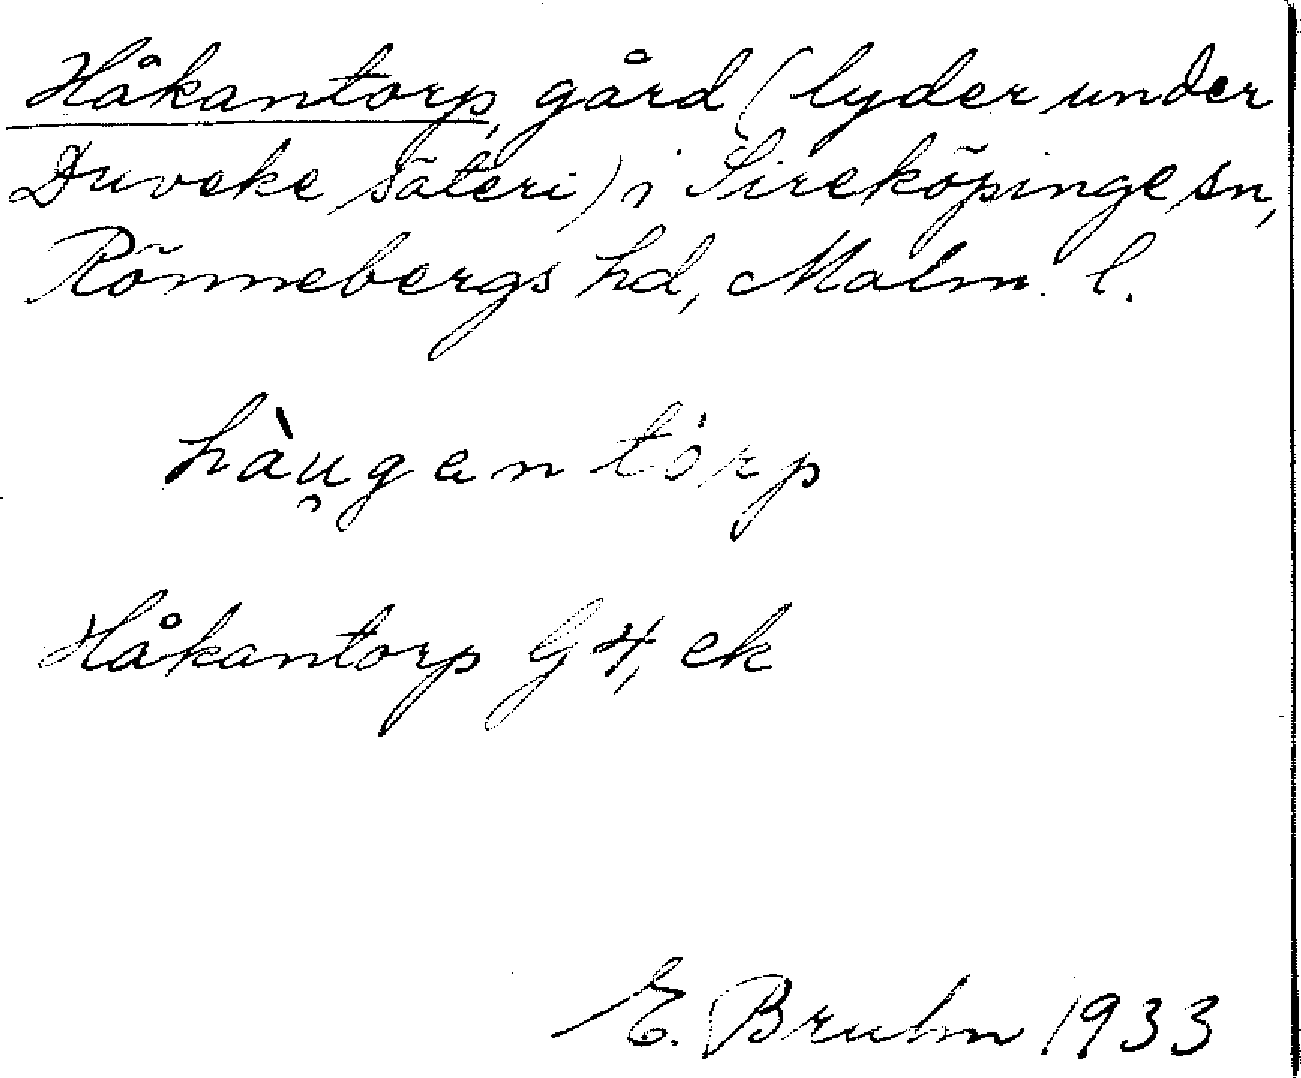 Håkantorp, gård (lyder under
Duveke säteri) i Sireköpinge sn,
Rönnebergs hd, Malm. l.
hàu̯gantȯrp
Håkantorp G4, ek
E. Bruhn 1933